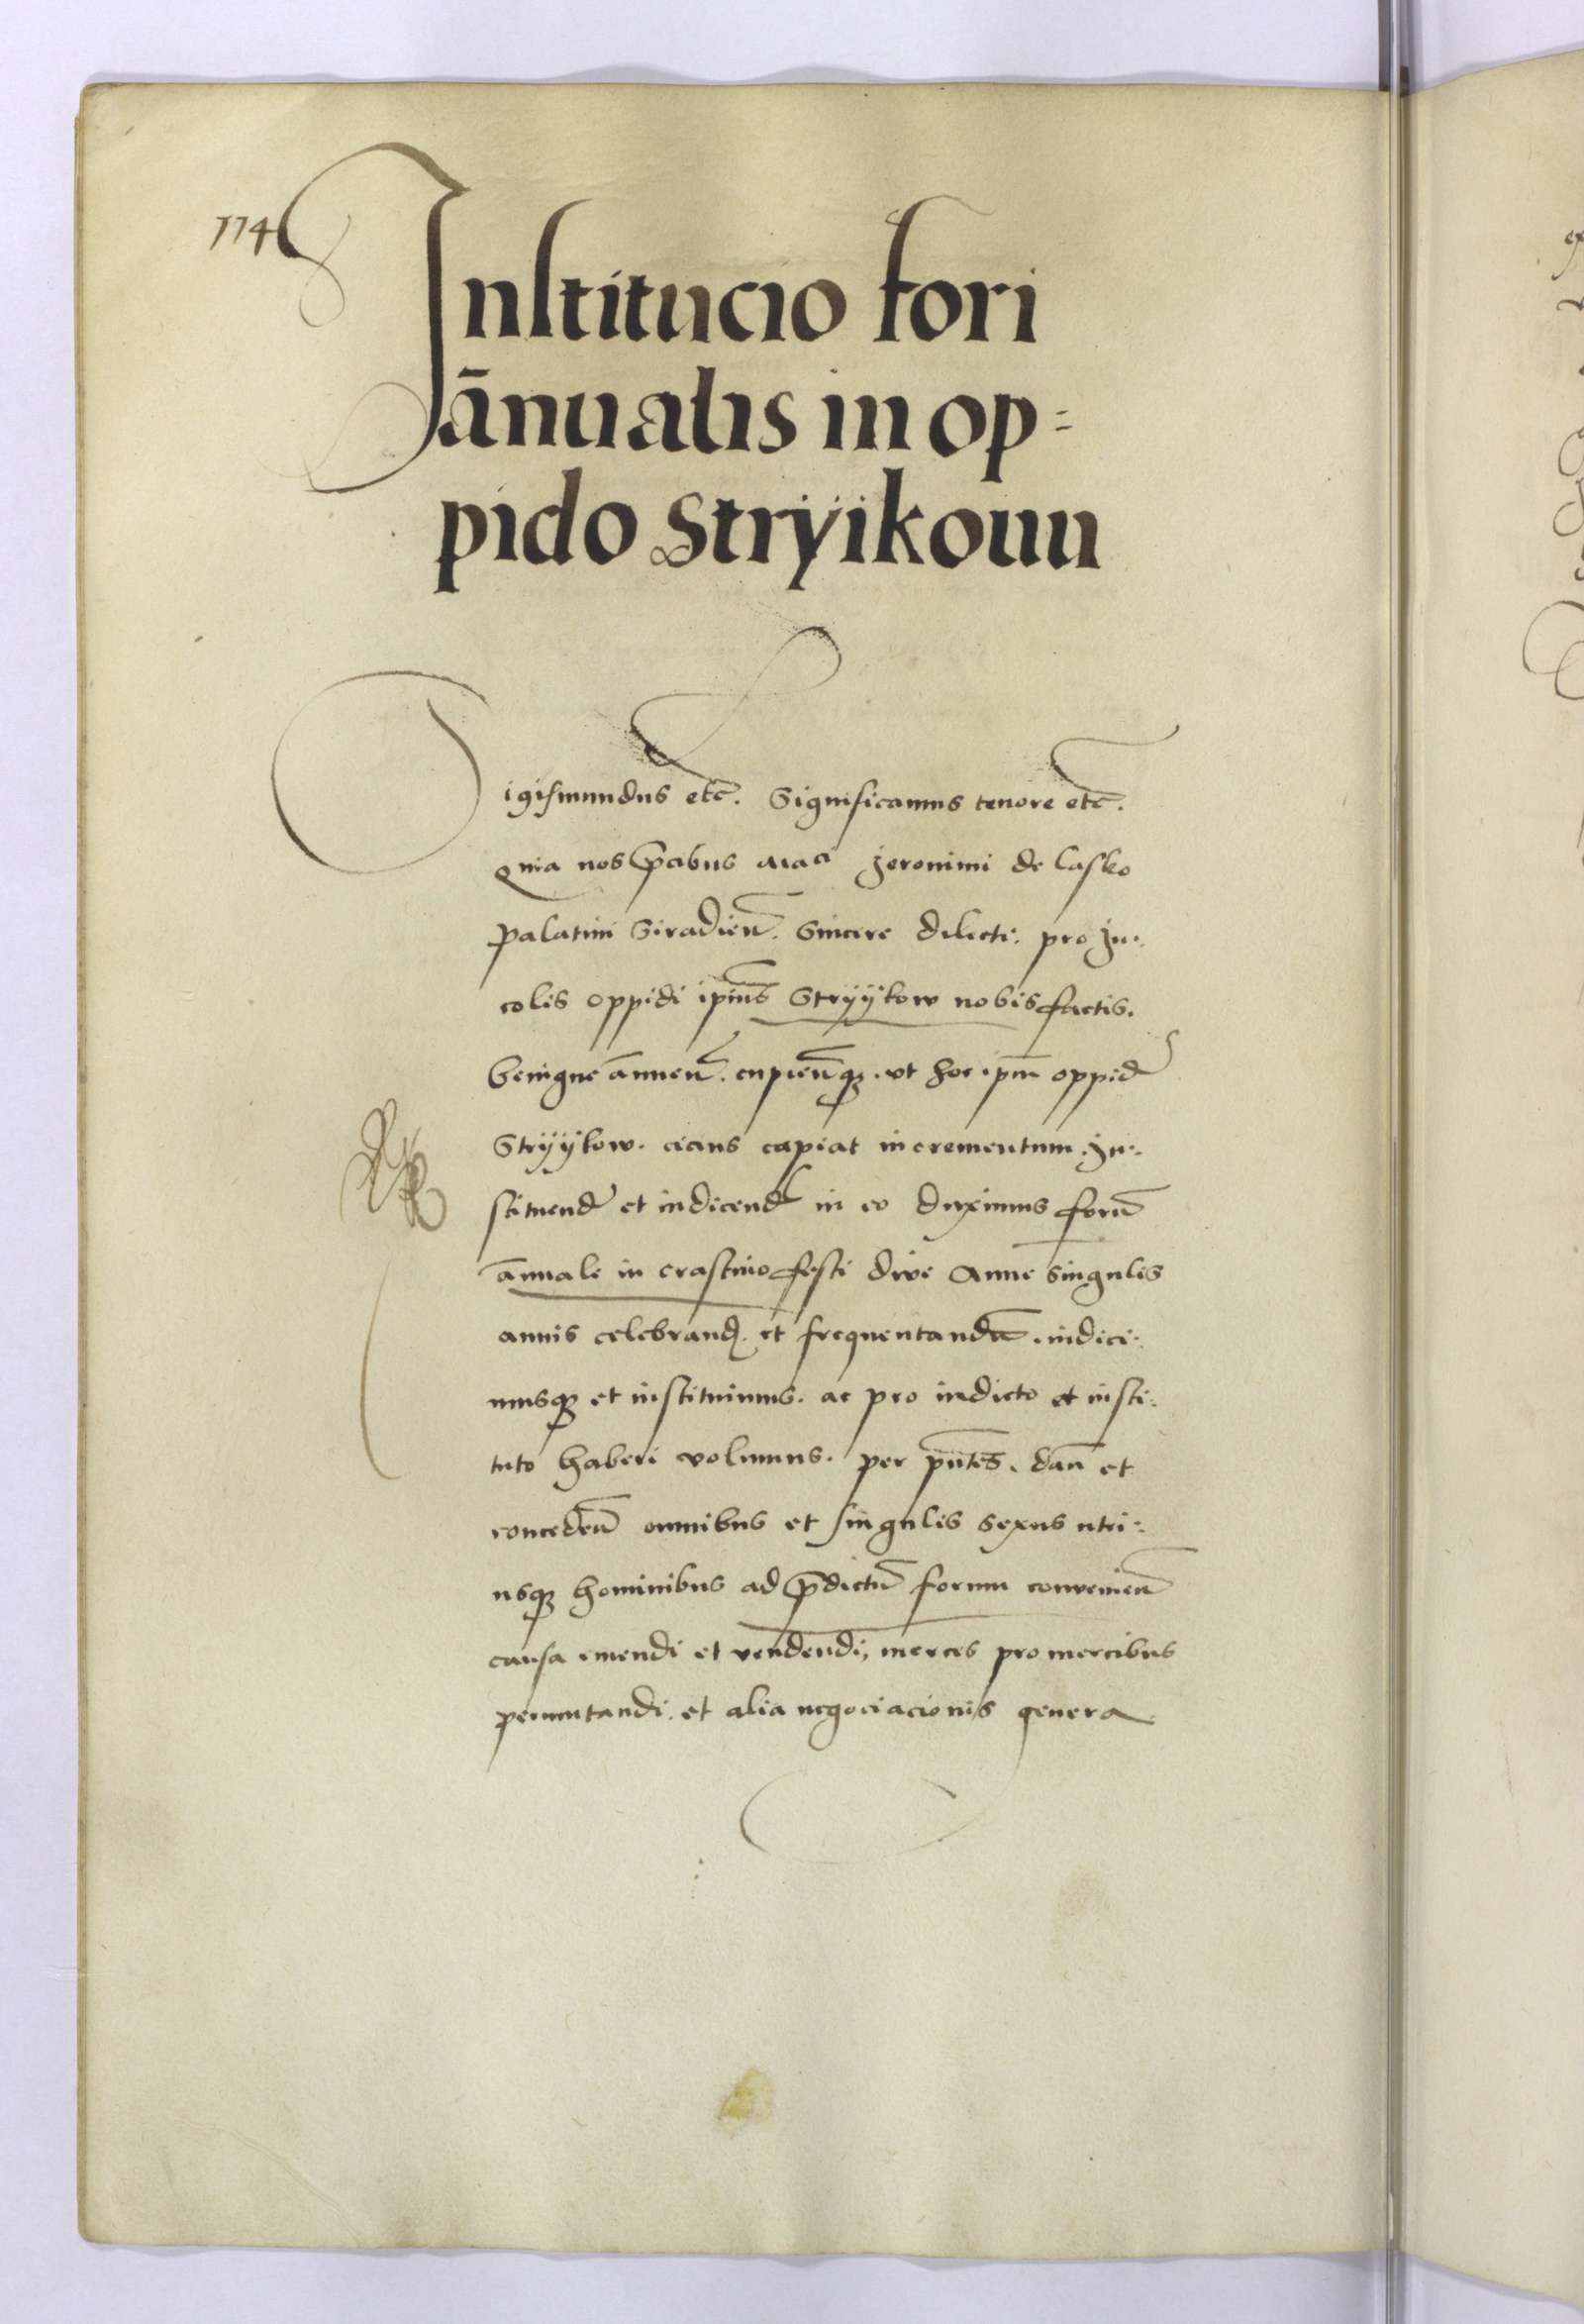 174
Institucio fori
ānualis in op=
pido Stryikouu
igismundus etc̄. Significamus tenore etc̄.
quia nos p̄cibus Jeronimi de Lasko
palatini Siradień. Sincere dilecti. pro Jn:
colis oppidi ip̄ius Stryÿkow nobis factis.
benigne ānueñ. cupieñqꝫ. ut hoc ip̄m oppid
Stryÿkow. cicius capiat incrementum. Jn:
stituend et indicend in eo duximus forū
ānuale in crastino festi dive Anne singulis
annis celebrand. et frequentandū. indici:
musqꝫ et instituimus. ac pro indicto et insti:
tuto haberi volumus. per pn̄tes. dañ et
concedeñ omnibus et singulis sexus utri:
usqꝫ hominibus ad p̄dictū forum convenieñ
causa emendi et vendendi, merces pro mercibus
permutandi. et alia negociacionis genera